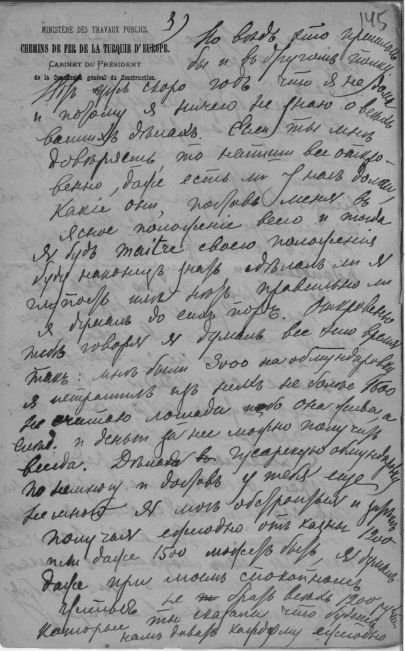 3)
145
MINISTÈRE DES TRAVAUX PUBLICS.
CHEMINS DE FER DE LA TURQUIE D'EUROPE.
CABINET DU PRÉSIDENT
de la Commission général du Construction.
Но ведь это
бы и въ другомъ
скоро годъ что я не
и потому я ничего не знаю о всѣхъ
вашихъ дѣлахъ. Если ты мнѣ
довѣряешь, то напиши все откро-
венно, даже есть ли у насъ долги,
какіе они, поставь меня въ
ясное положеніе всего и тогда
я буду maître своего положенія
буду наконецъ знать сдѣлалъ ли я
глупость или нѣтъ, правильно ли
я думалъ до сихъ поръ. Откровенно
тебѣ говоря я думалъ все это время
такъ: мнѣ были 3000 на обмундировку
я истратилъ изъ нихъ не более 1600
не считаю лошади ибо она жива а
и деньги за нее можно получить
всегда. гусарскую обмундировку
по немногу и у тебя еще
немного я могъ
получая ежегодно отъ казны 1200
или даже 1500 можетъ быть, я думалъ
даже при моемъ спокойномъ
не братъ всѣхъ 1200 рублей
которые ты сказала что будешь
намъ давать каждому ежегодно